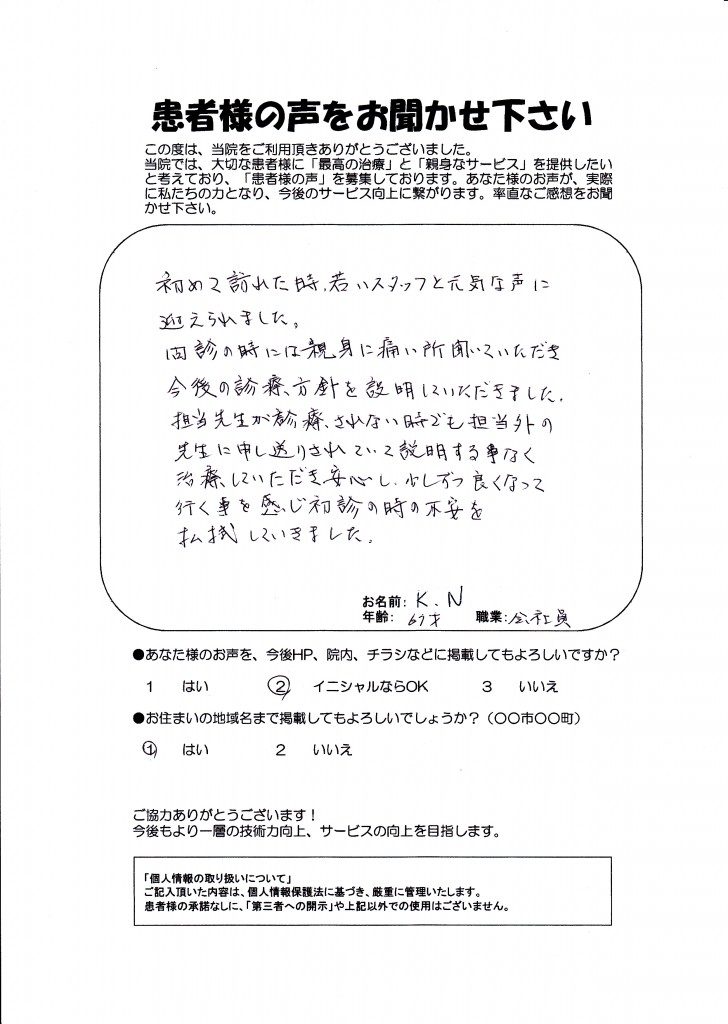 患者様の声をお聞かせ下さい
この度は、当院をご利用頂きありがとうございました。
当院では、大切な患者様に「最高の治療」と「親身なサービス」を提供したい
と考えており、「患者様の声」を募集しております。あなた様のお声が、実際
に私たちの力となり、今後のサービス向上に繋がります。率直なご感想をお聞
かせ下さい。
初めて訪れた時、若いスタッフと元気な声に
迎えられました。
問診の時には親身に痛い所聞いていただき
今後の診療、方針を説明していただきました。
担当先生が診療、されない時でも担当外の
先生に申し送りされていて説明する事なく
治療、していただき安心し、少しずつ良くなって
行く事を感じ初診の時の不安を
払拭していきました。
お名前: K.N
年齢: 才 職業: 会社員
●あなた様のお声を、今後HP、院内、チラシなどに掲載してもよろしいですか?
1 はい ② イニシャルならOK 3 いいえ
●お住まいの地域名まで掲載してもよろしいでしょうか?(〇〇市〇〇町)
① はい 2 いいえ
ご協力ありがとうございます!
今後もより一層の技術力向上、サービスの向上を目指します。
「個人情報の取り扱いについて」
ご記入頂いた内容は、個人情報保護法に基づき、厳重に管理いたします。
患者様の承諾なしに、「第三者への開示」や上記以外での使用はございません。